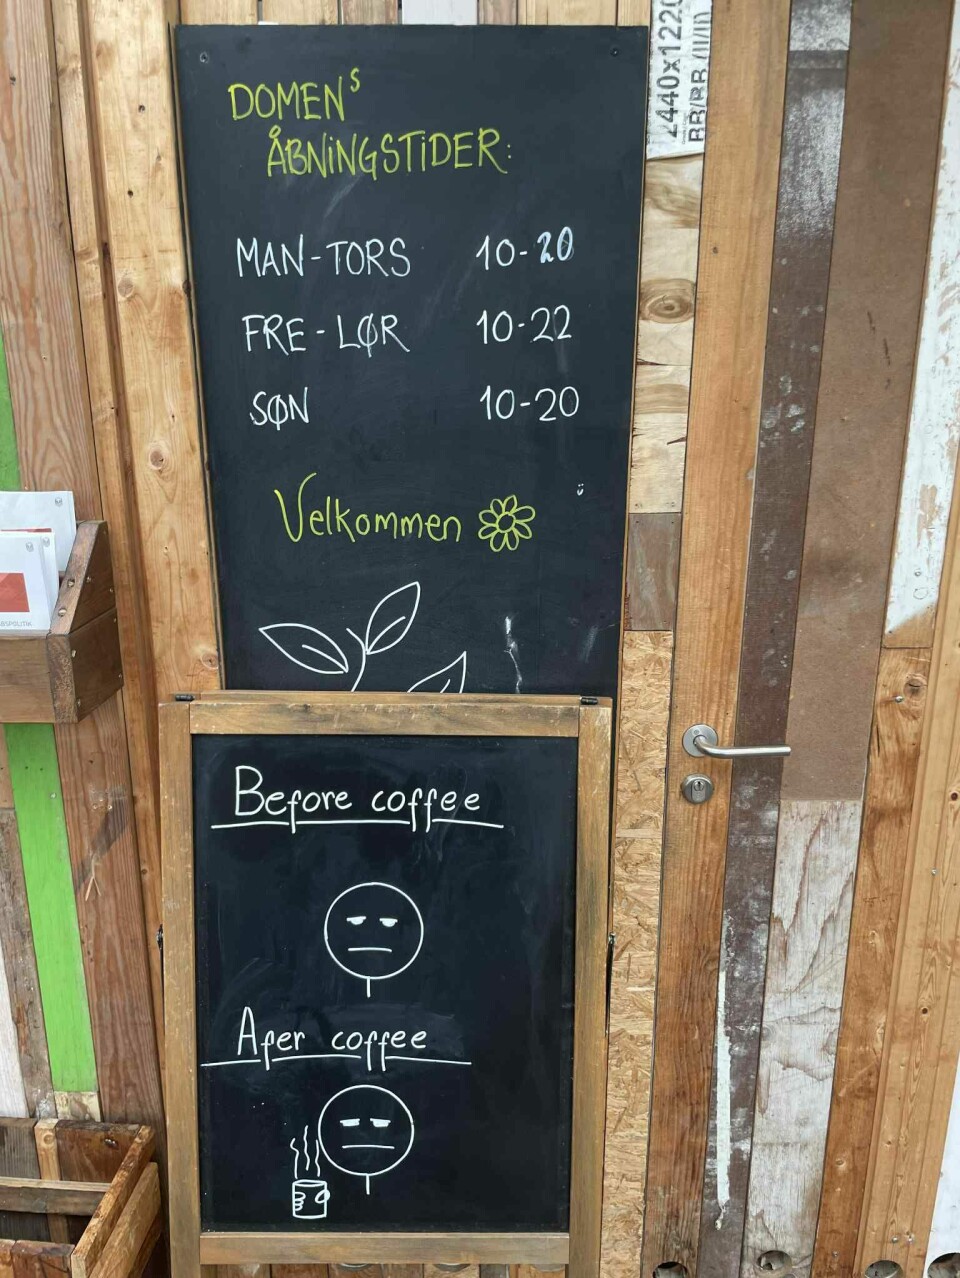 DOMENS
ÅBNINGSTIDER:
MAN-TORS 10-20
FRE-LØR 10-22
SØN 10-20
Velkommen
Before coffee
Afer coffee
2440x1220
BB/BB (II/II)